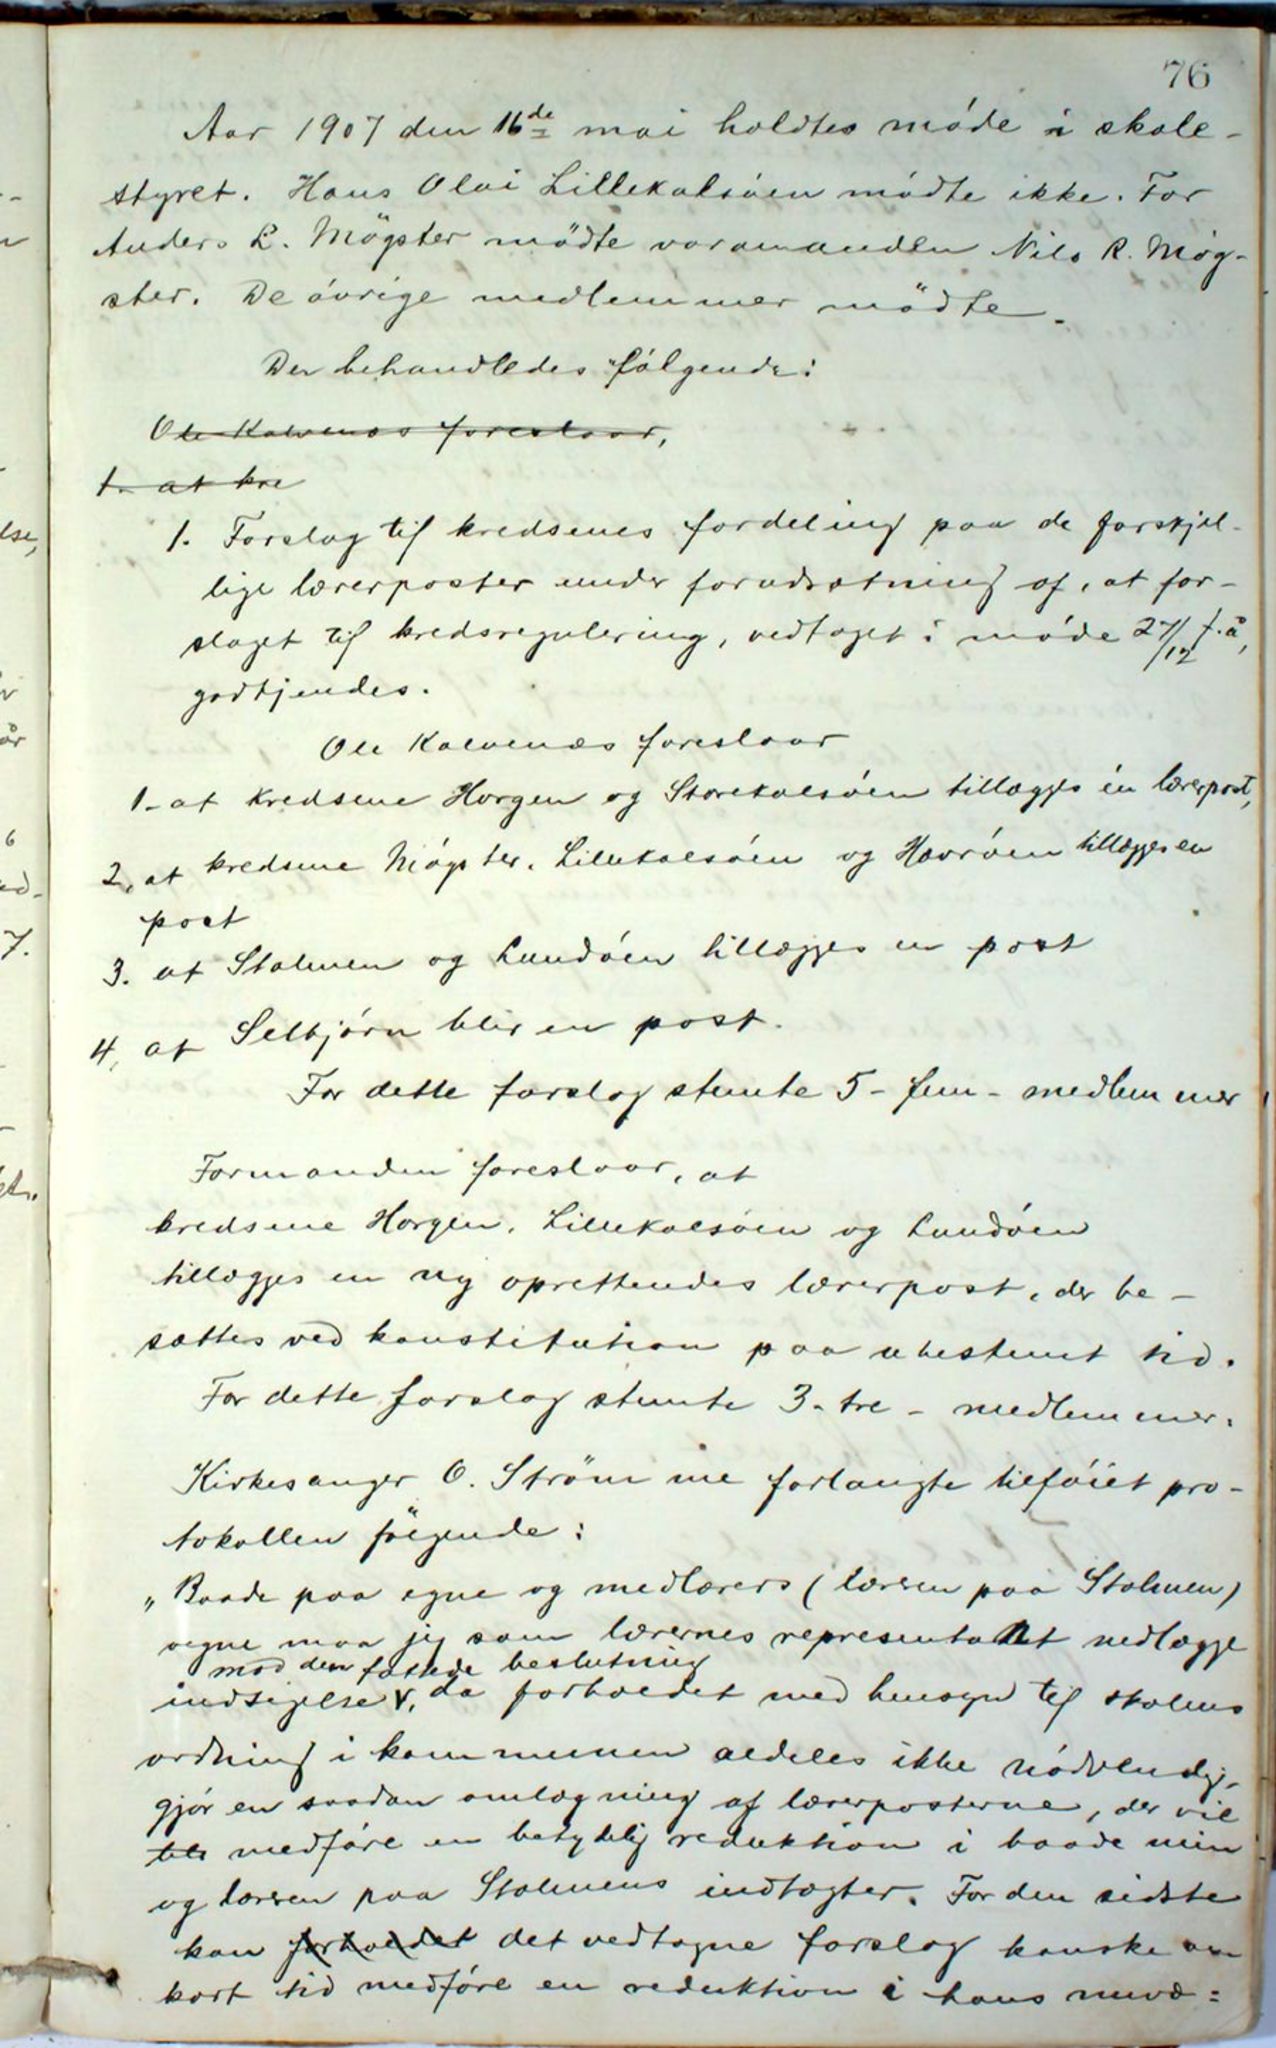 76
Aar 1907 den 16de mai holdtes møde i skole-
styret. Hans Olai Lillekalsøen mødte ikke. For
Anders L. Møgster mødte varamanden Nils R. Møg-
ster. De øvrige medlemmer mødte.
Der behandledes følgende:
Ole Kalvenæs foreslaar,
1. at kre
1. Forslag til kredsenes fordeling paa de forskjel-
lige lærerposter under forudsætning af, at for-
slaget til kredsregulering, vedtaget i møde 27/12 f.å,
godkjendes.
Ole Kalvenæs foreslaar
1. at kredsene Horgen og Storekalsøen tillægges én lærerpost,
2, at kredsene Møgster, Lillekalsøen og Havrøen tillægges en
post
3. at Stolmen og Lundøen tillægges en post
4, at Selbjørn blir en post.
For dette forslag stemte 5 - fem - medlemmer
Formanden foreslaar, at
kredsene Horgen, Lillekalsøen og Lundøen
tillægges en ny oprettendes lærerpost, der be-
sættes ved konstitution paa ubestemt tid.
For dette forslag stemte 3 - tre - medlemmer.
Kirkesanger O. Strømme forlangte tilføiet pro-
tokollen følgende:
„Baade paa egne og medlærers (læreren paa Stolmen)
vegne maa jeg som lærernes representant nedlægge
mod den fattede beslutning
indsigelse v, da forholdet med hensyn til skolens
ordning i kommunen aldeles ikke nødvendig-
gjør en saadan omlægning af lærerposterne, der vil
bli medføre en betydelig reduktion i baade min
og læreren paa Stolmens indtægter. For den sidste
kan forholdet det vedtagne forslag kanske om
kort tid medføre en reduktion i hans nuvæ=